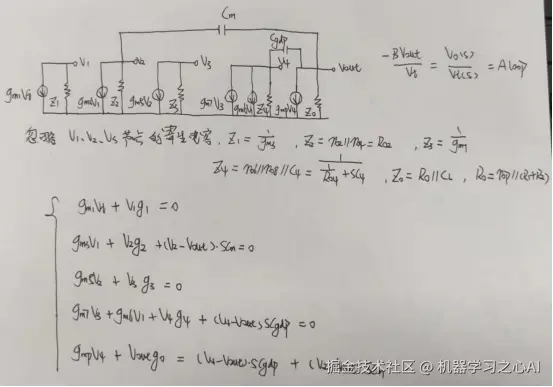 Cm
Cgdp
V1 V2 V3 V4 Vout
gm1Vf Z1 gm4V1 Z2 gm5V2 Z3 gm7V3 gm6V1 Z4 gmpV4 Z0
-BVout/Vf = Vo(s)/Vt(s) = Aloop
忽略 V1、V2、V3 节点的寄生电容, Z1 = 1/gm3, Z2 = ro2//ro4 = Ro2, Z3 = 1/gm7
Z4 = ro6//ro8//C4 = 1/(1/Ro4 + SC4), Z0 = R0//CL, R0 = rop//(R1+R2)
gm1Vf + V1g1 = 0
V2g2 + (V2-Vout)·SCm = 0
gm5V2 + V3g3 = 0
gm7V3 + gm6V1 + V4g4 + (V4-Vout)SCgdp = 0
gmpV4 + Voutg0 = (V4-Vout)·SCgdp +
掘金技术社区 @ 机器学习之心AI